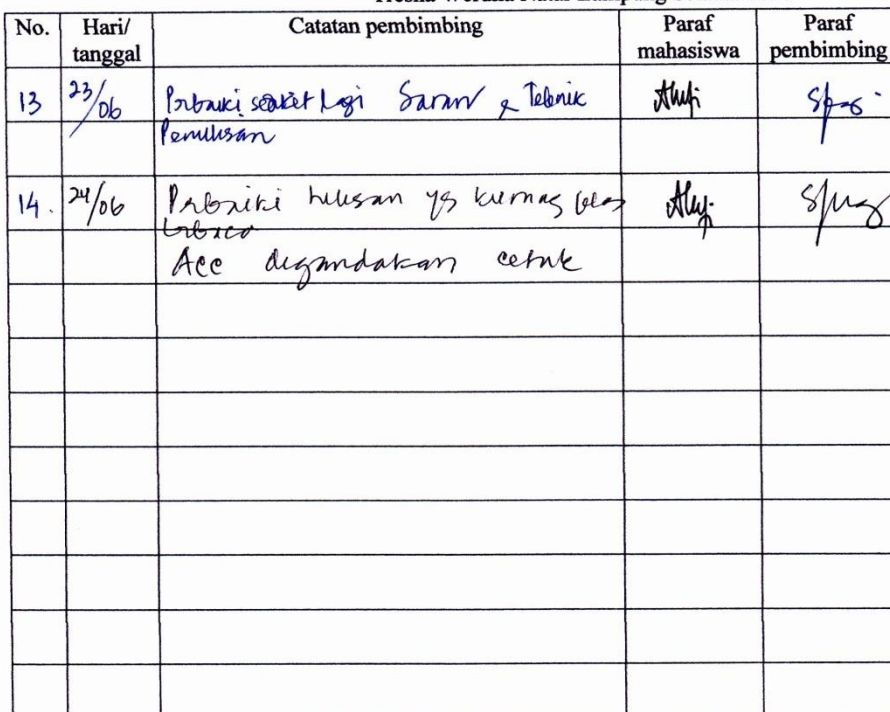 No. Hari/ tanggal Catatan pembimbing Paraf mahasiswa Paraf pembimbing
13 23/06 Perbaiki sedikit lagi Saran & Teknik
Penulisan
14. 24/06 Perbaiki tulisan yg kurang jelas
terbaca
Acc digandakan cetak